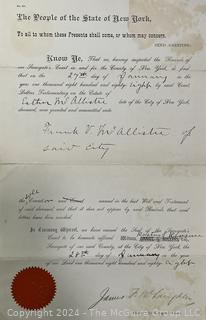 The People of the State of New York,
To all to whom these Presents shall come, or whom may concern,
SEND GREETING:
Know Ye, That we, having inspected the Records of
our Surrogate's Court in and for the County of New York, do find
that on the 27th day of January
one thousand eight hundred and eighty eight by said Court,
Letters Testamentary on the Estate of
Esther McAllister late of the City of New York,
deceased, were granted and committed unto
Frank V. McAllister of
said City
the
named in the last Will and Testament
of said deceased, and that it does not appear by said Records that said
letters have been revoked.
In Testimony Whereof, we have caused the Seal of the Surrogate's
Court to be hereunto affixed. Witness,
Surrogate of our said County, at the City of New York, the
28th day of January in the year
of our Lord one thousand eight hundred and eighty eight
James F. McLaughlin
Copyright © 2024 - Auction Masters